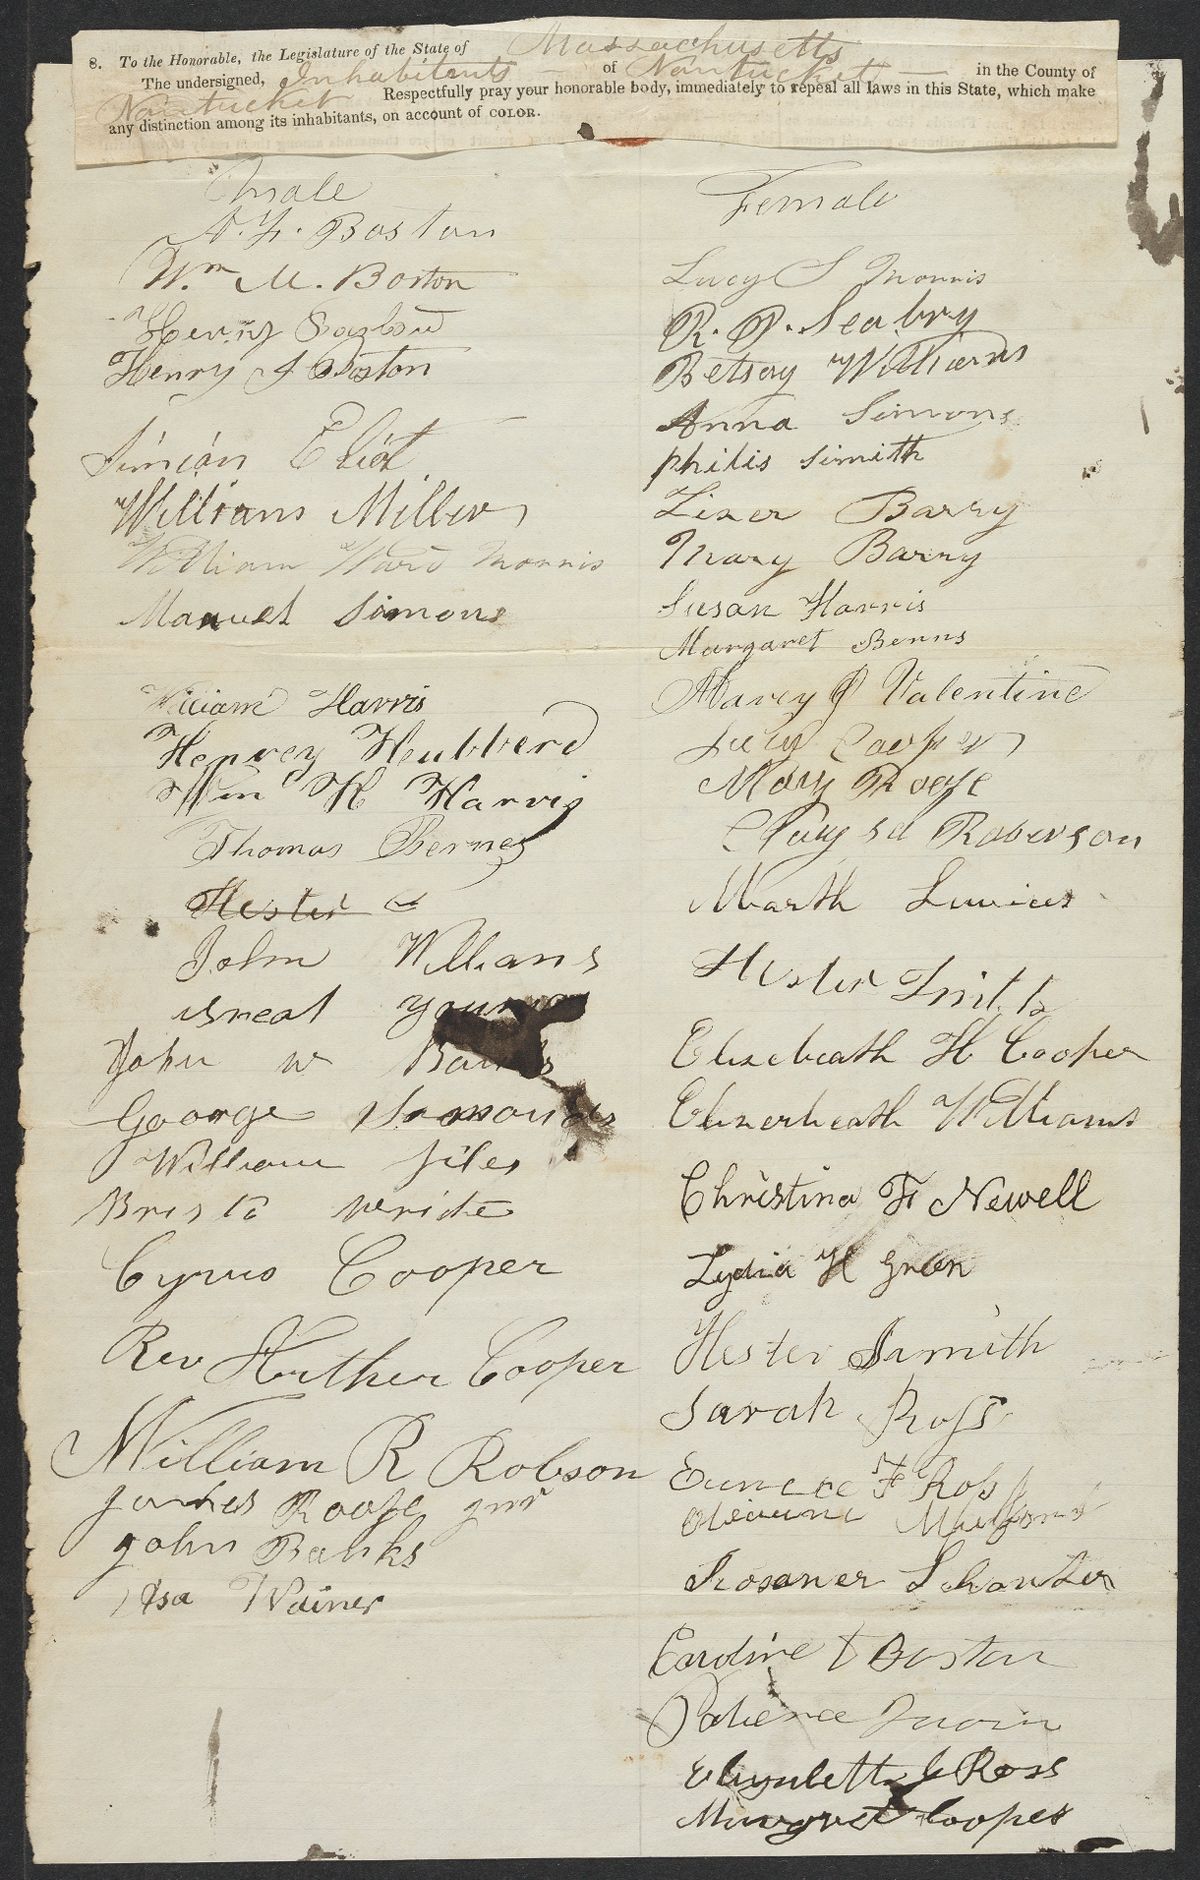 8. To the Honorable, the Legislature of the State of Massachusetts
The undersigned, Inhabitants of Nantucket in the County of
Nantucket Respectfully pray your honorable body, immediately to repeal all laws in this State, which make
any distinction among its inhabitants, on account of COLOR.
Male
A. F. Boston
Wm M. Boston
Henry
Henry J Boston
Simián Eliot
Willians Miller
William Ward Morris
Manuel Simons
William Harris
Henrey Hubberd
Wm H Harris
Thomas Bernes
Hester
John Willians
isreal young
John w Banks
George Simonds
William Jiles
Bristo wride
Cyrus Cooper
Rev Arther Cooper
William R Robson
James Roofe jnr
John Banks
Asa Wainer
Female
Lucy S Morris
R. P. Seabry
Betsey Williams
Anna Simons
philis simith
Lizer Barry
Mary Barry
Susan Harris
Margaret Benns
Marcy J Valentine
Lucy Cooper
Mary Roofe
Roberson
Marth
Hester Smith
Elizebeath H Cooper
Elizerbeath Williams
Christina F Newell
Lydia H Green
Hester Smith
Sarah Ross
Eunece F Ross
Rosaner
Caroline t Boston
Patience
Elizabeth J Ross
Margret Cooper